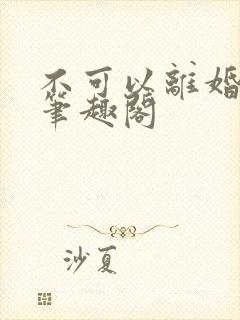 不可以離婚
筆趣閣
沙夏